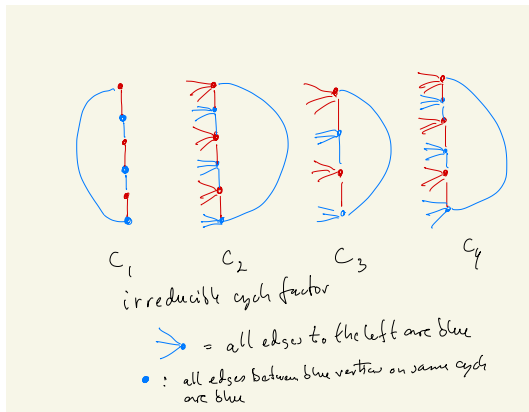 C1 C2 C3 C4
irreducible cycle factor
= all edges to the left are blue
: all edges between blue vertices on same cycle
are blue